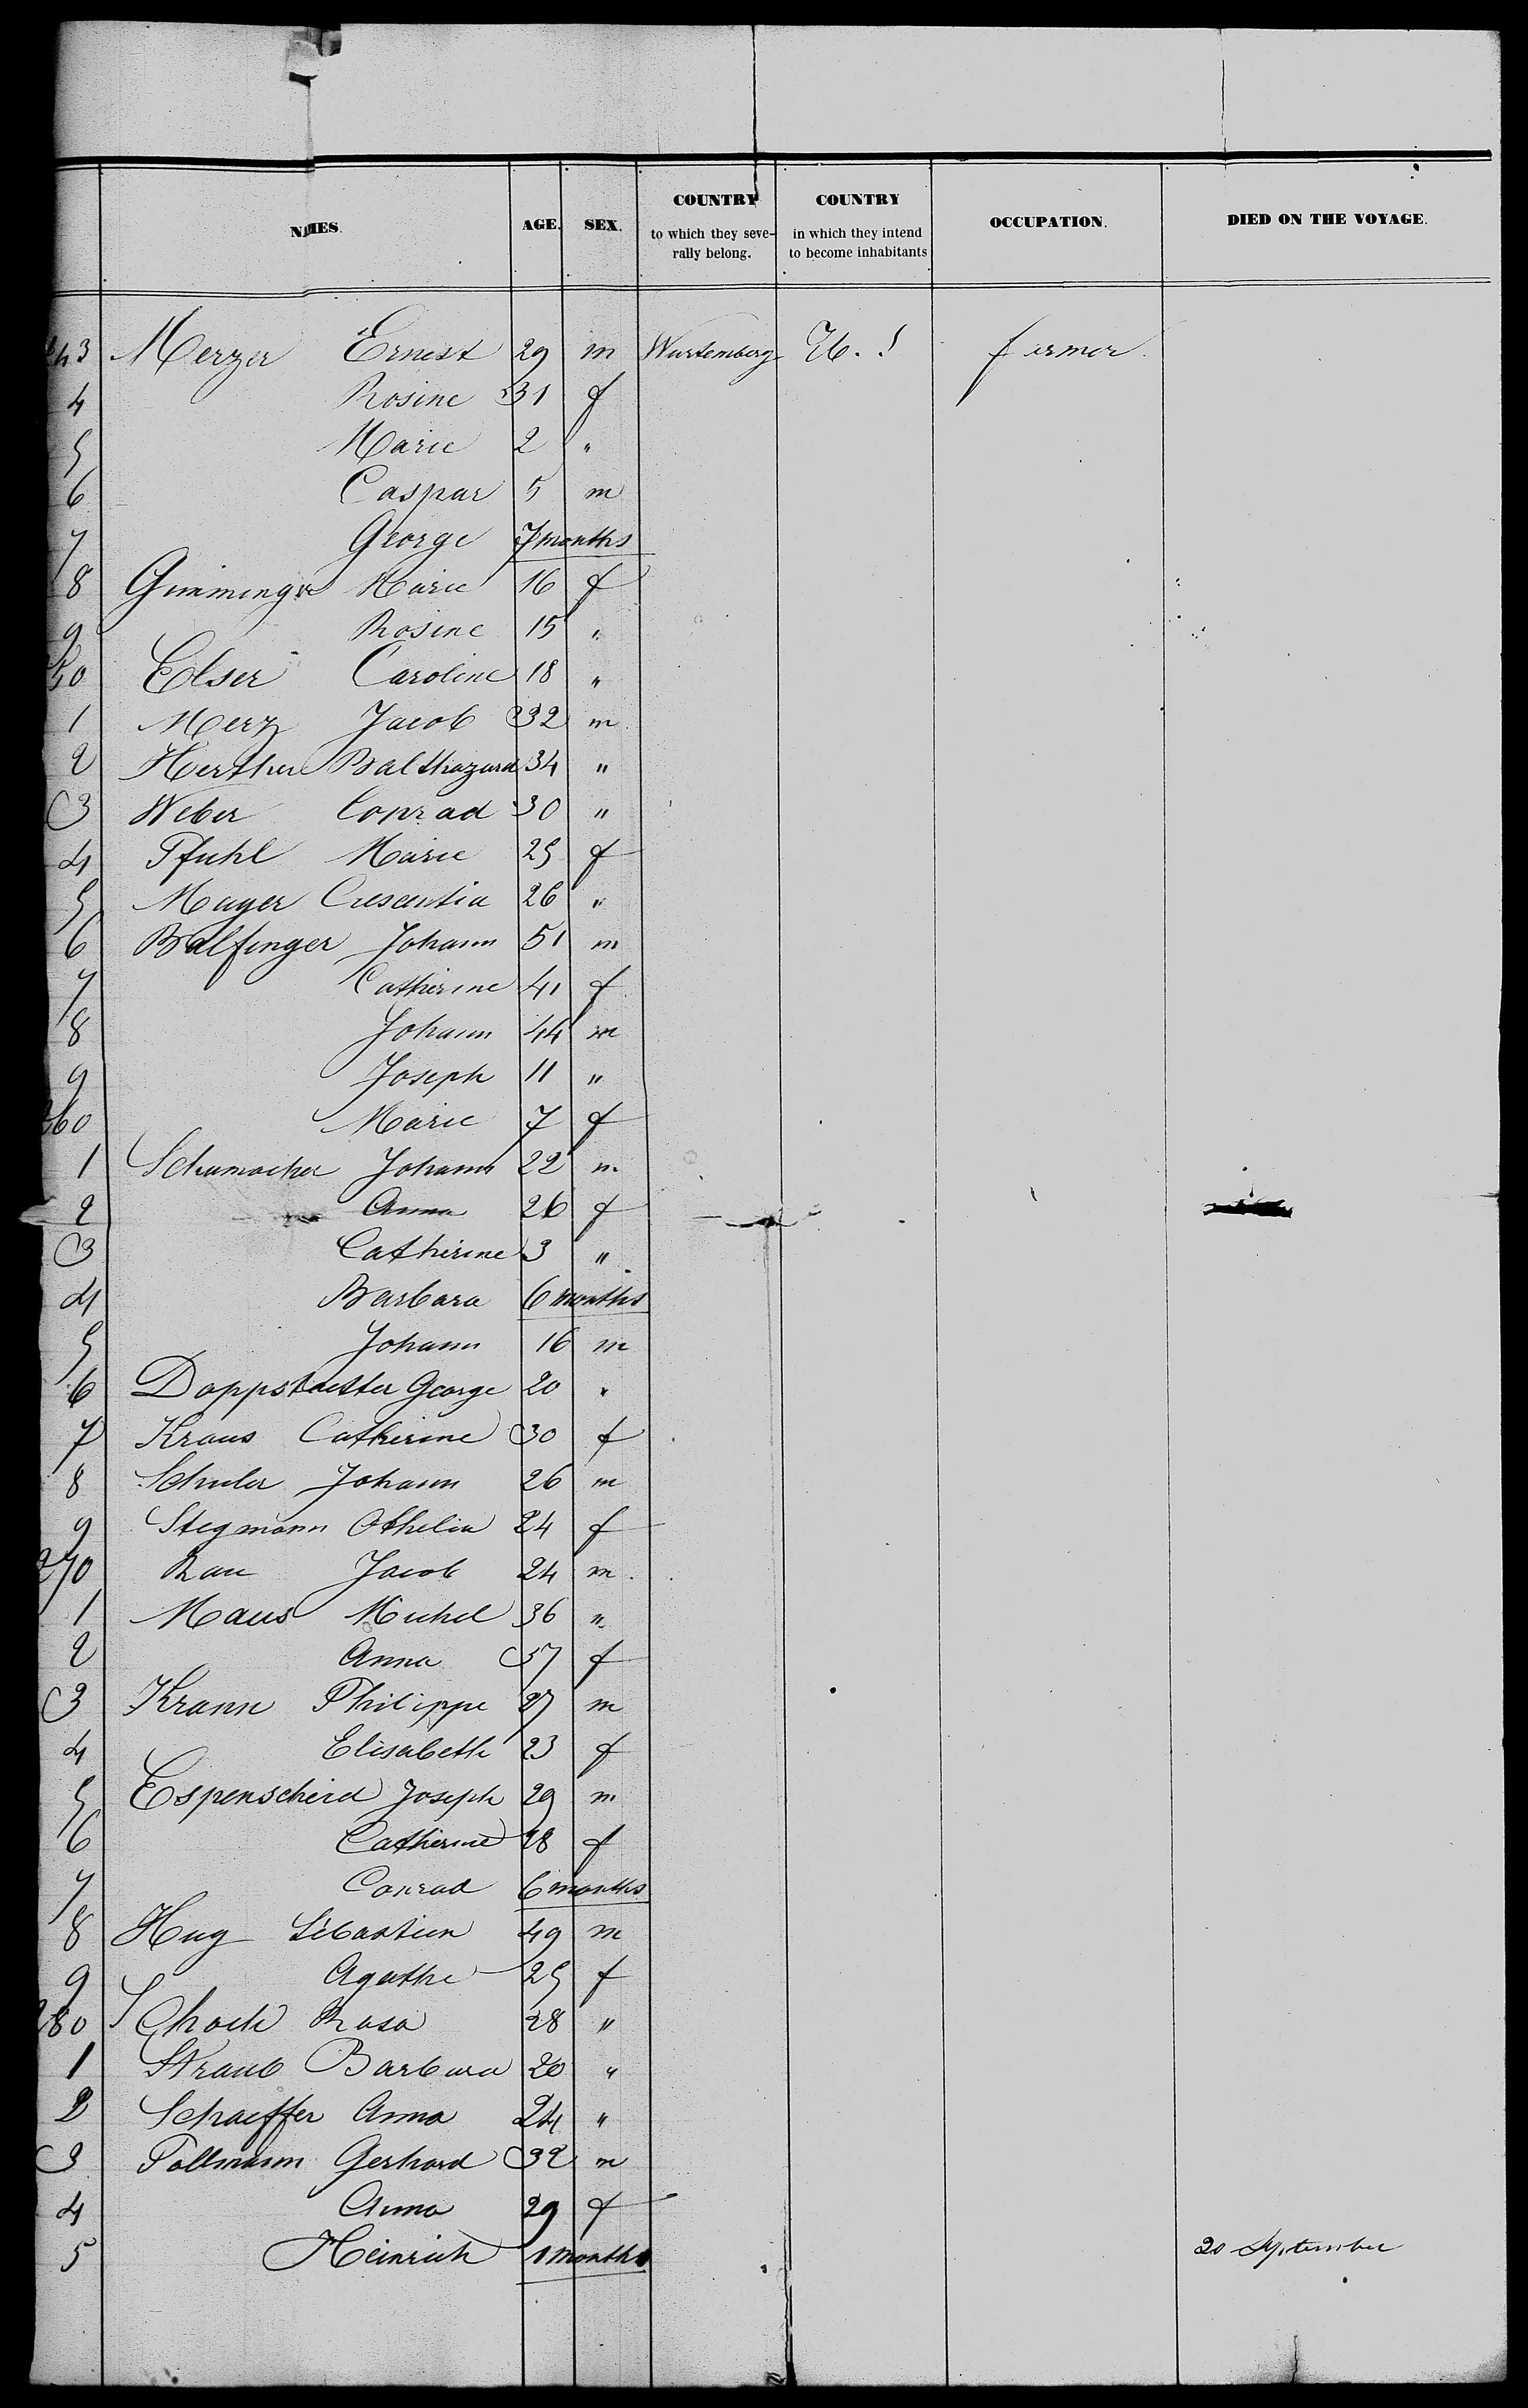 NAMES. AGE. SEX. COUNTRY to which they seve-rally belong. COUNTRY in which they intend to become inhabitants OCCUPATION. DIED ON THE VOYAGE.
243 Merzer Ernest 29 m Wurtemberg U. S farmer
4 Rosine 31 f
5 Marie 2 "
6 Caspar 5 m
7 George 7 months
8 Gimminger Marie 16 f
9 Rosine 15 "
250 Elser Caroline 18 "
1 Merz Jacob 32 m
2 Herther Balthazard 34 "
3 Weber Conrad 30 "
4 Pfuhl Marie 25 f
5 Mayer Crescentia 26 "
6 Balfinger Johann 51 m
7 Catherine 41 f
8 Johann 44 m
9 Joseph 11 "
260 Marie 7 f
1 Schumacher Johann 22 m
2 Anna 26 f
3 Catherine 3 "
4 Barbara 6 months
5 Johann 16 m
6 Doppstaetter George 20 "
7 Kraus Catherine 30 f
8 Schuler Johann 26 m
9 Stegmann Othelia 24 f
270 Rau Jacob 24 m
1 Maus Michel 36 "
2 Anna 37 f
3 Krann Philippe 27 m
4 Elisabeth 23 f
5 Espenscheid Joseph 29 m
6 Catherine 28 f
7 Conrad 6 months
8 Hug Sebastien 49 m
9 Agathe 25 f
280 Schock Rosa 28 "
1 Straub Barbara 20 "
2 Schaeffer Anna 24 "
3 Pollmann Gerhard 32 m
4 Anna 29 f
5 Heinrich 1 months 20 September